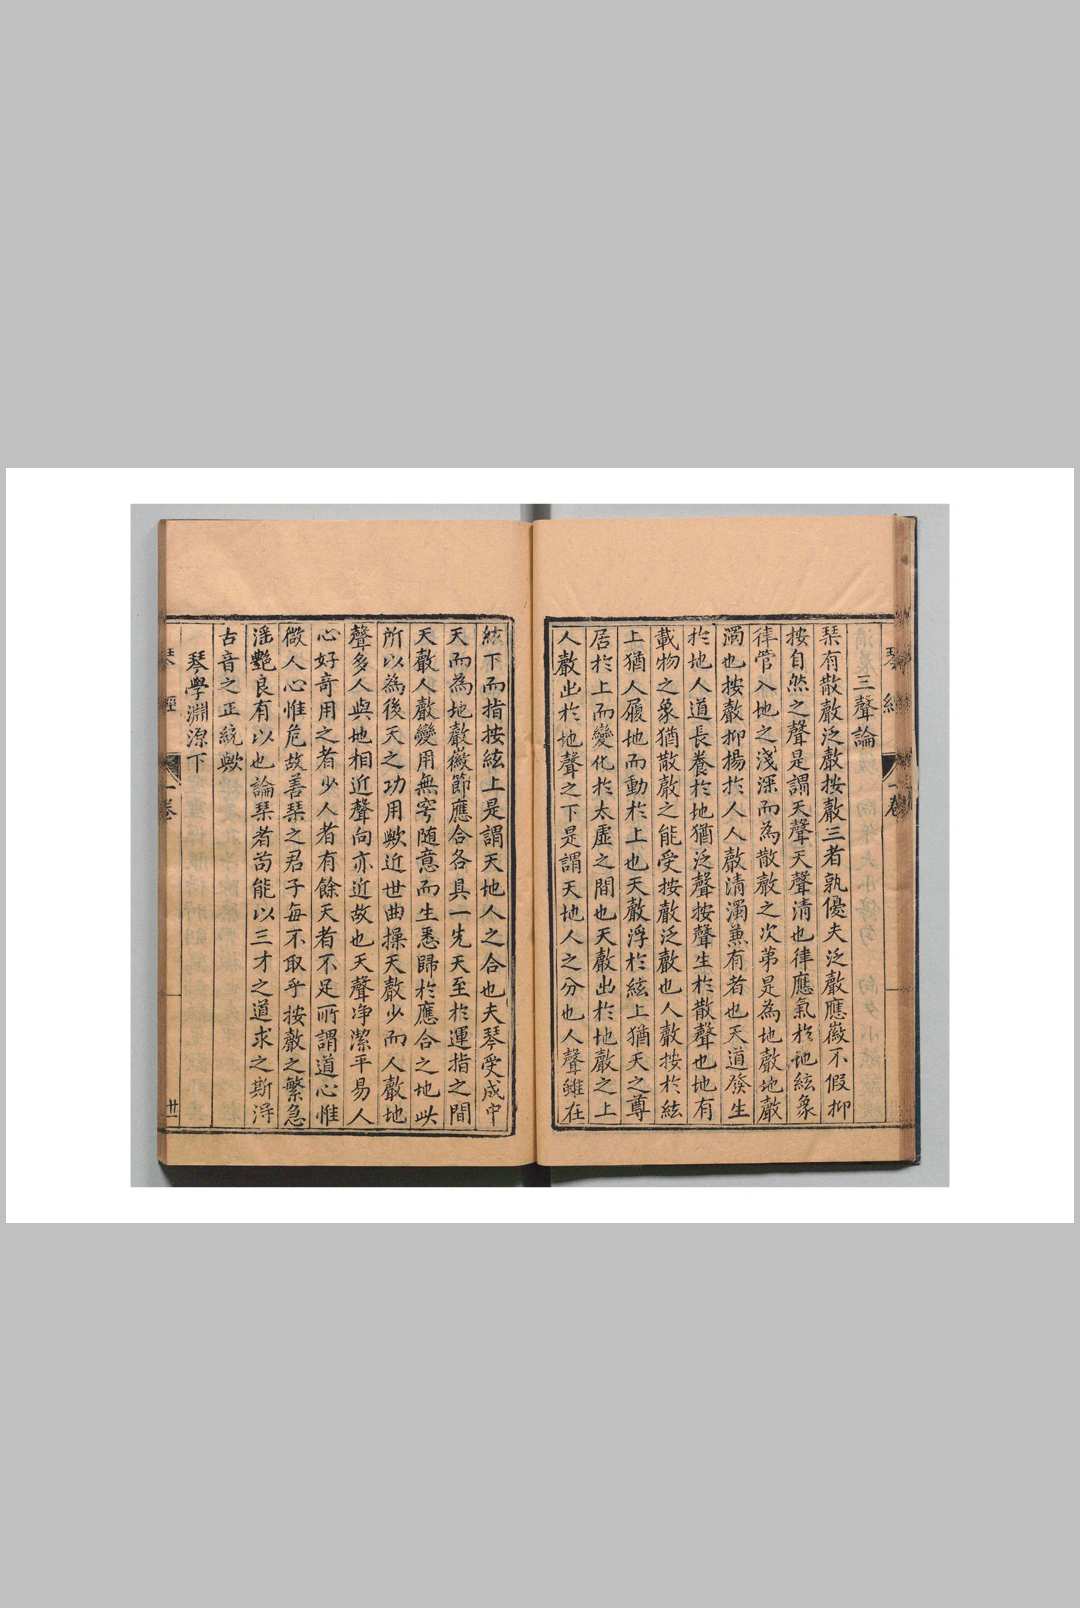 琴經
一卷
三聲論
琹有散聲泛聲按聲三者孰優夫泛聲應徽不假抑
按自然之聲是謂天聲天聲清也律應氣於地絃象
律管入地之淺深而為散聲之次苐是為地聲地聲
濁也按聲抑揚於人人聲清濁兼有者也天道發生
於地人道長養於地猶泛聲按聲生於散聲也地有
載物之象猶散聲之能受按聲泛聲也人聲按於絃
上猶人履地而動於上也天聲浮於絃上猶天之尊
居於上而變化於太虛之間也天聲出於地聲之上
人聲出於地聲之下是謂天地人之分也人聲雖在
絃下而指按絃上是謂天地人之合也夫琴受成中
天而為地聲徽節應合各具一先天至於運指之間
天聲人聲變用無窮随意而生悉歸於應合之地此
所以為後天之功用歟近世曲操天聲少而人聲地
聲多人與地相近聲向亦近故也天聲净潔平易人
心好奇用之者少人者有餘天者不足所謂道心惟
微人心惟危故善琹之君子每不取乎按聲之繁急
淫艷良有以也論琹者苟能以三才之道求之斯淂
古音之正統歟
琴學淵源下
琴經
一卷
廿一